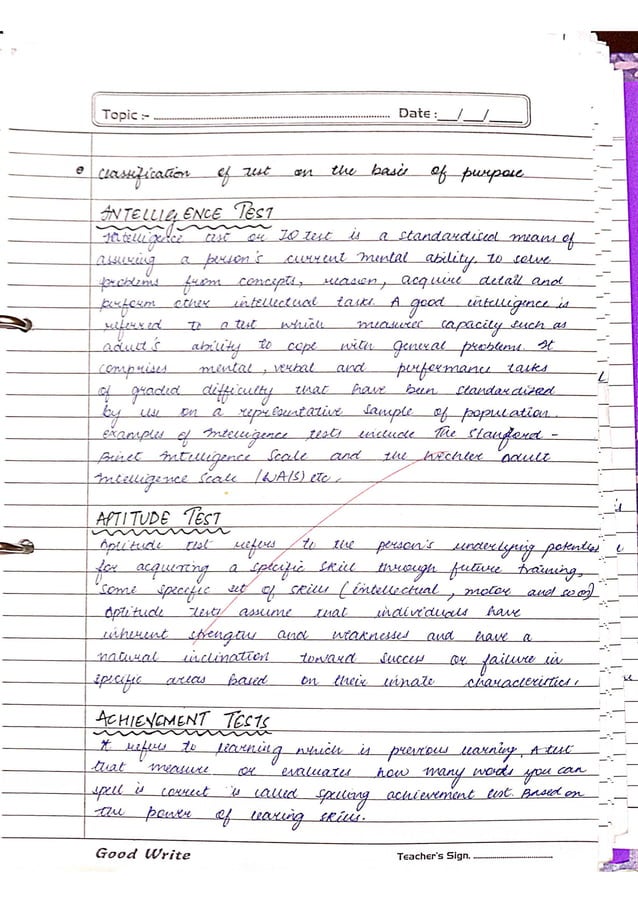 Topic :- Date :__/__/____
classification of test on the basis of purpose
INTELLIgENCE TEST
Intelligence test or IQ test is a standardised means of
assuring a person's current mental ability, to solve
problems from concepts, reason, acquire detail and
perform other intellectual tasks. A good intelligence is
referred to a test which measures capacity such as
adult's ability to cope with general problems. It
comprises mental, verbal and performance tasks
of graded difficulty that have been standardized
by use on a representative sample of population.
examples of Intelligence tests include The Stanford -
Binet Intelligence Scale and the Wechler adult
Intelligence Scale (WAIS) etc.
APTITUDE TEST
Aptitude test refers to the person's underlying potential
for acquiring a specific skill through future training,
some specific set of skills (intellectual, motor and so on)
Aptitude Tests assume that individuals have
inherent strengths and weaknesses and have a
natural inclination toward success or failure in
specific areas based on their innate characteristics.
ACHIEVEMENT TESTS
It refers to learning which is previous learning. A test
that measure or evaluates how many words you can
spell is correct is called spelling achievement test. Based on
the power of learing skills.
Good Write Teacher's Sign.